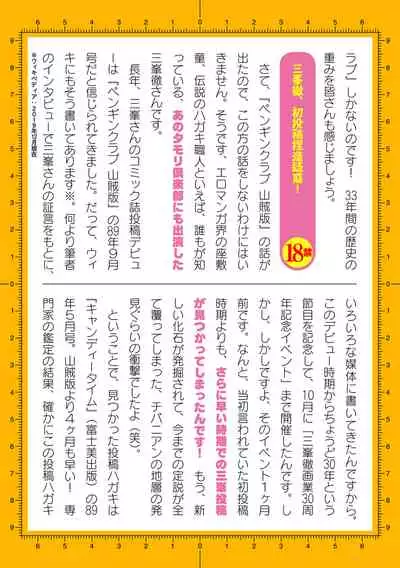 ラブ』しかないのです！ 33年間の歴史の
重みを皆さんも感じましょう。
三峯徹、初投稿捏造疑惑！
18禁
さて、『ペンギンクラブ 山賊版』の話が
出たので、この方の話をしないわけにはい
きません。そうです、エロマンガ界の座敷
童、伝説のハガキ職人といえば、誰もが知
っている、あのタモリ倶楽部にも出演した
三峯徹さんです。
長年、三峯さんのコミック誌投稿デビュ
ーは『ペンギンクラブ 山賊版』の89年9月
号だと信じられてきました。だって、ウィ
キにもそう書いてあります※。何より筆者
のインタビューで三峯さんの証言をもとに、
※ウィキペディア：2019年12月現在
いろいろな媒体に書いてきたんですから。
このデビュー時期からちょうど30年という
節目を記念して、10月に「三峯徹画業30周
年記念イベント」まで開催したんです。し
かし、しかしですよ、そのイベント1ヶ月
前です。なんと、当初言われていた初投稿
時期よりも、さらに早い時期での三峯投稿
が見つかってしまったんです！ もう、新
しい化石が発掘されて、今までの定説が全
て覆ってしまった、チバニアンの地層の発
見ぐらいの衝撃でしたよ（笑）。
ということで、見つかった投稿ハガキは
『キャンディータイム』（富士美出版）の89
年5月号。山賊版より4ヶ月も早い！ 専
門家の鑑定の結果、確かにこの投稿ハガキ